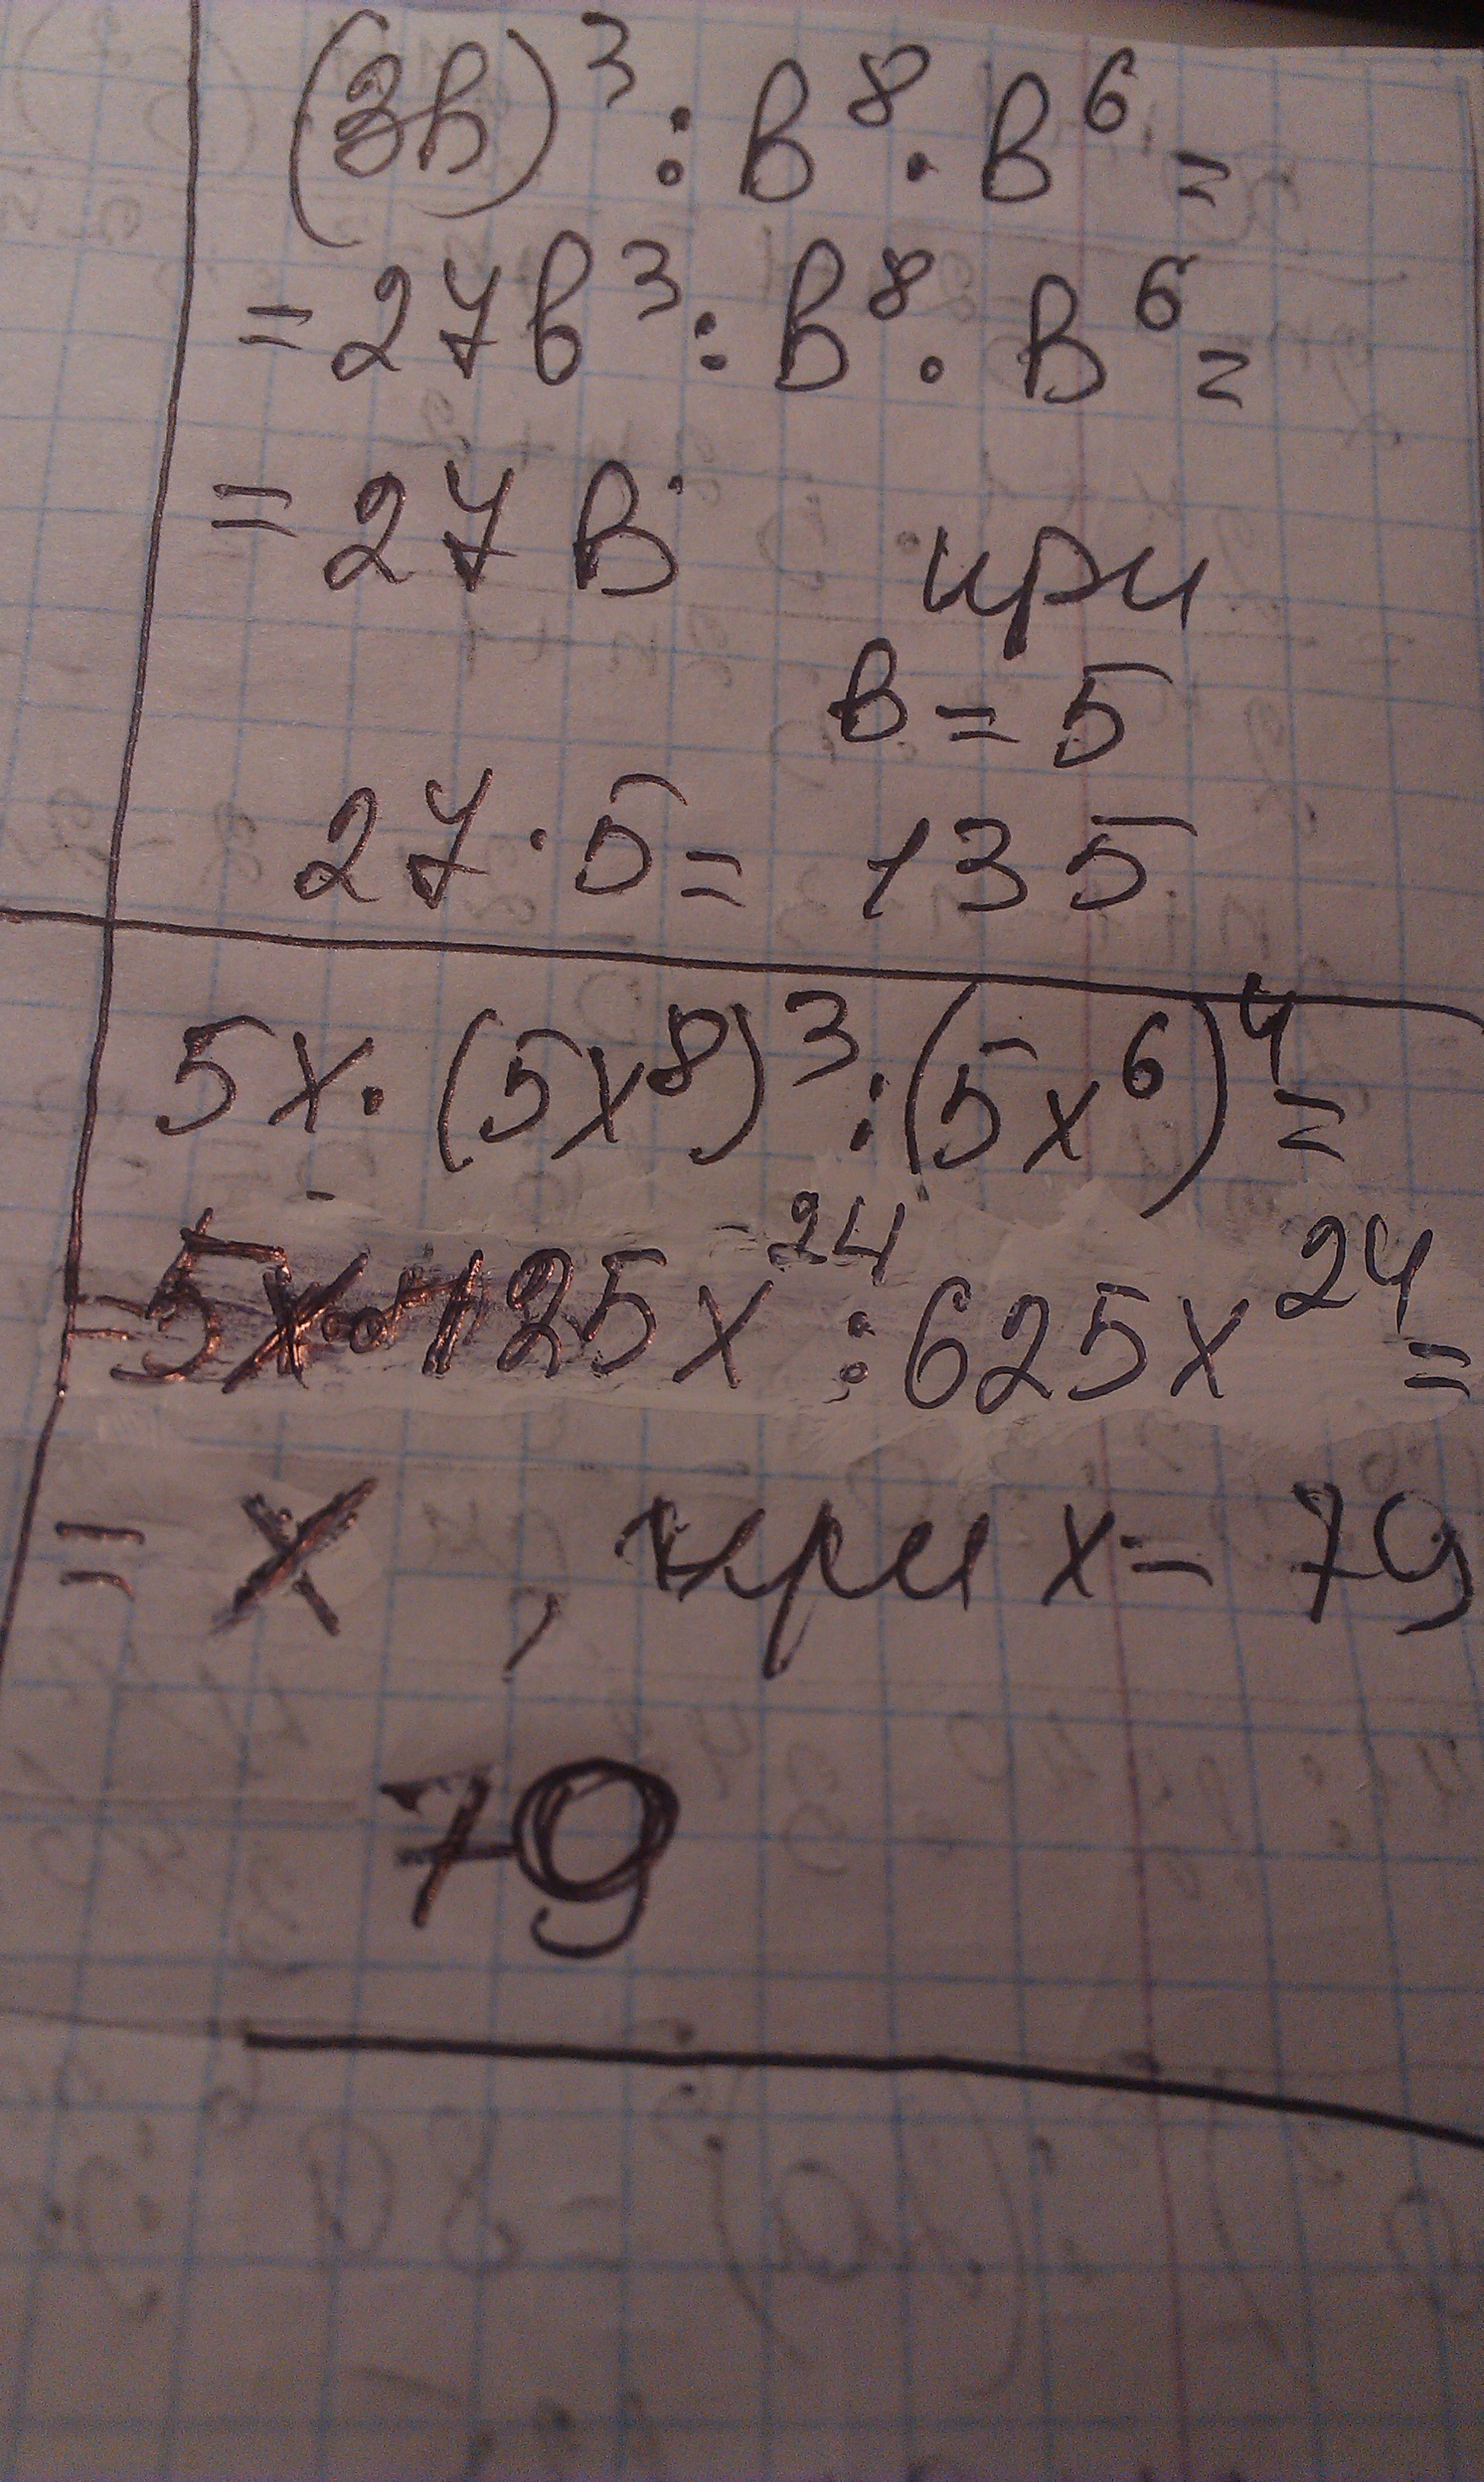 (3в)³ : в⁸ · в⁶ =
= 27в³ : в⁸ · в⁶ =
= 27в при
в = 5
27 · 5 = 135
5x · (5x⁸)³ : (5x⁶)⁴ =
= 5x · 125x²⁴ : 625x²⁴ =
= x , при x = 79
79